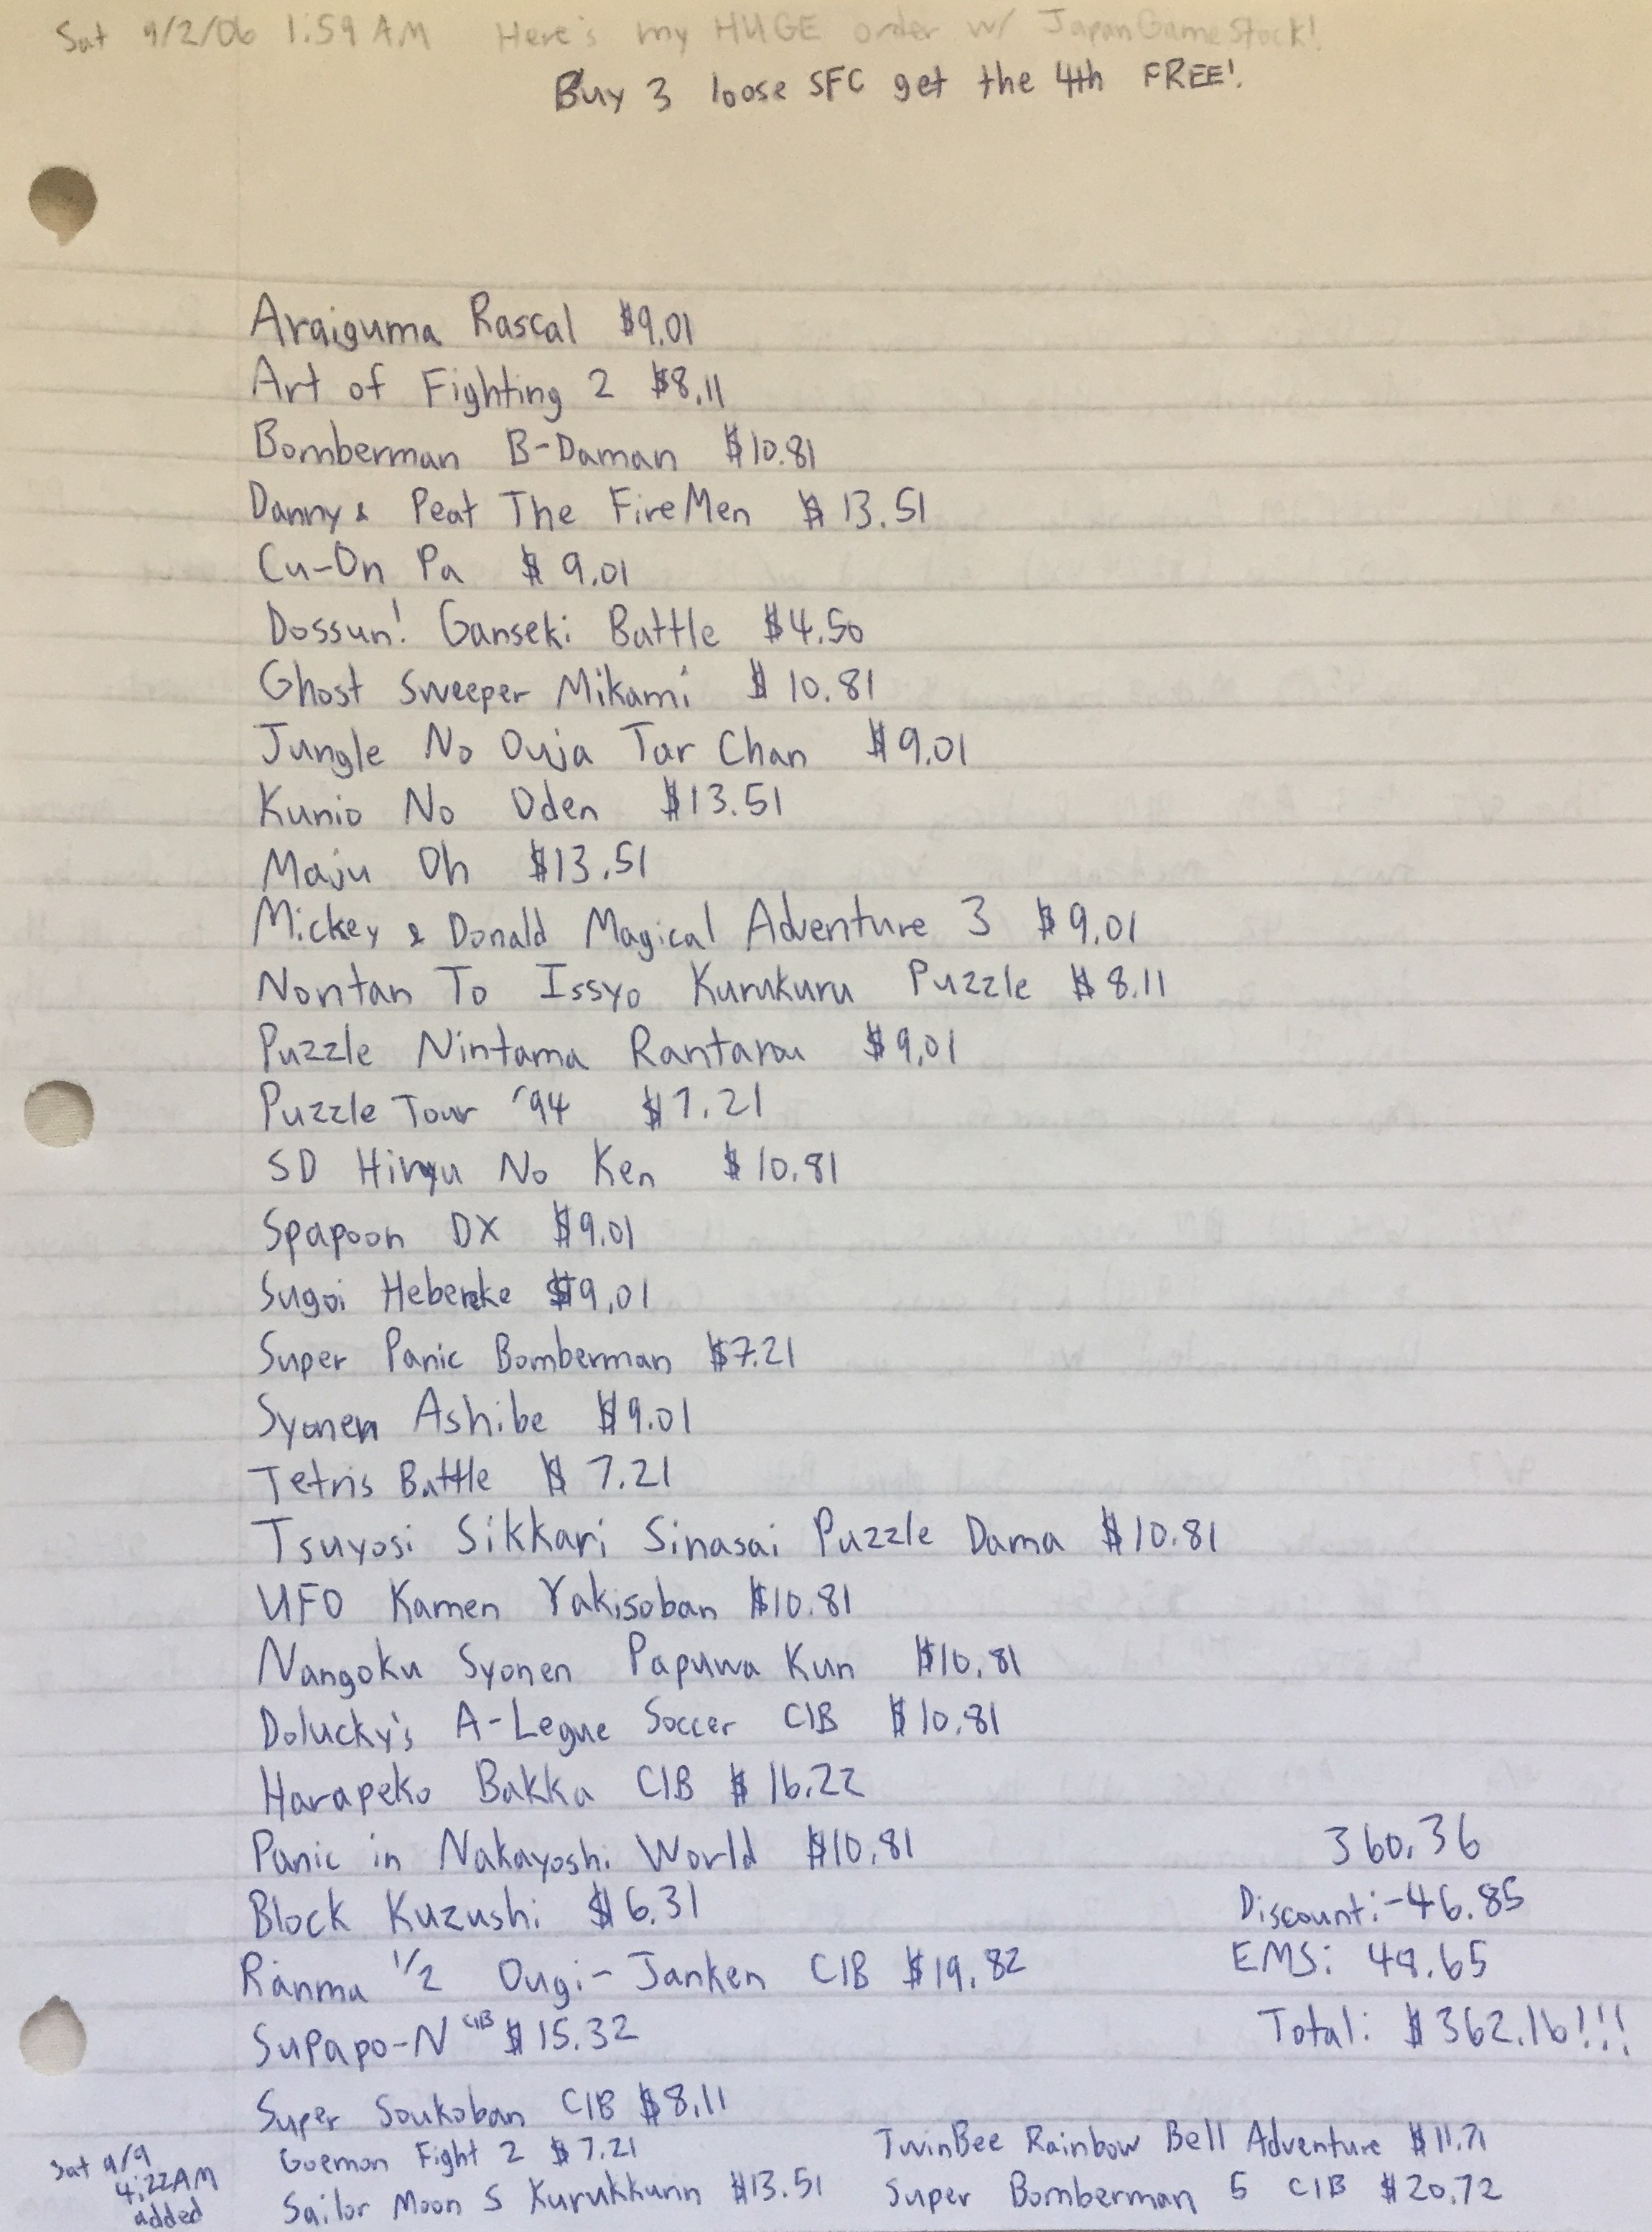 Sat 9/2/06 1:59 AM Here's my HUGE order w/ JapanGameStock!
Buy 3 loose SFC get the 4th FREE!
Araiguma Rascal $9.01
Art of Fighting 2 $8.11
Bomberman B-Daman $10.81
Danny & Peat The FireMen $13.51
Cu-On Pa $9.01
Dossun! Ganseki Battle $4.50
Ghost Sweeper Mikami $10.81
Jungle No Ouja Tar Chan $9.01
Kunio No Oden $13.51
Maju Oh $13.51
Mickey & Donald Magical Adventure 3 $9.01
Nontan To Issyo Kurukuru Puzzle $8.11
Puzzle Nintama Rantarou $9.01
Puzzle Tour '94 $7.21
SD Hiryu No Ken $10.81
Spapoon DX $9.01
Sugoi Hebereke $9.01
Super Panic Bomberman $7.21
Syonen Ashibe $9.01
Tetris Battle $7.21
Tsuyosi Sikkari Sinasai Puzzle Dama $10.81
UFO Kamen Yakisoban $10.81
Nangoku Syonen Papuwa Kun $10.81
Dolucky's A-Legue Soccer CIB $10.81
Harapeko Bakka CIB $16.22
Panic in Nakayoshi World $10.81 360.36
Block Kuzushi $6.31 Discount: -46.85
Ranma 1/2 Ougi-Janken CIB $19.82 EMS: 48.65
SuPapo-N CIB $15.32 Total: $362.16!!!
Super Soukoban CIB $8.11
Sat 9/9 4:22AM added
Goemon Fight 2 $7.21 TwinBee Rainbow Bell Adventure $11.71
Sailor Moon S Kurukkurin $13.51 Super Bomberman 5 CIB $20.72